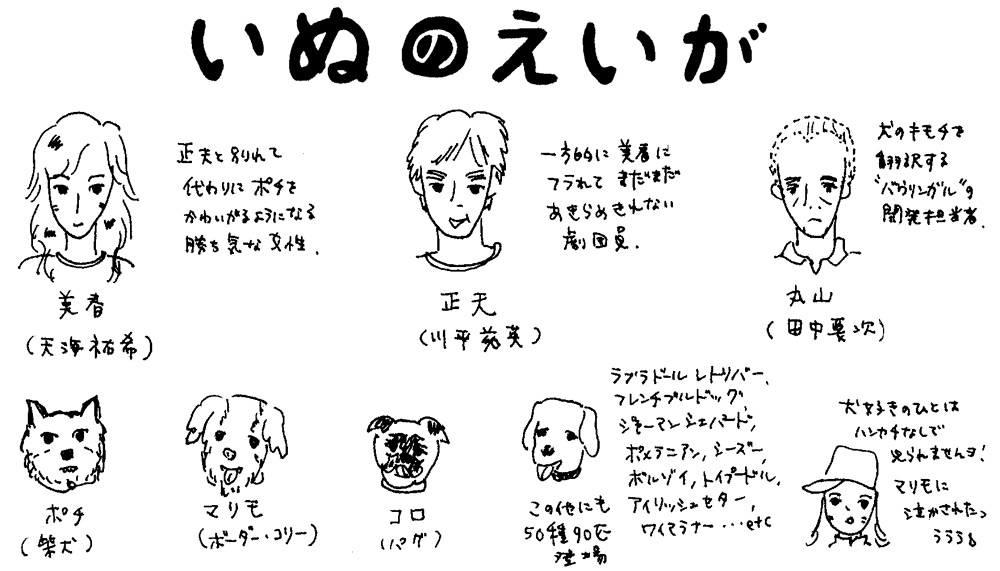 いぬのえいが
正夫と別れて
代わりに ポチを
かわいがるようになる
勝ち気な女性.
美春
(天海祐希)
一方的に 美春に
フラれて まだまだ
あきらめきれない
劇団員.
正夫
(川平慈英)
犬のキモチを
翻訳する
"バウリンガル"の
開発担当者.
丸山
(田中要次)
ポチ
(柴犬)
マリモ
(ボーダー・コリー)
コロ
(パグ)
この他にも
50種90匹
登場
ラブラドール レトリバー,
フレンチブルドッグ,
ジャーマンシェパード,
ポメラニアン, シーズー,
ボルゾイ, トイプードル,
アイリッシュセター,
ワイマラナー …etc
犬好きのひとは
ハンカチなしで
見られませんヨ!
マリモに
泣かされたっ
ううう